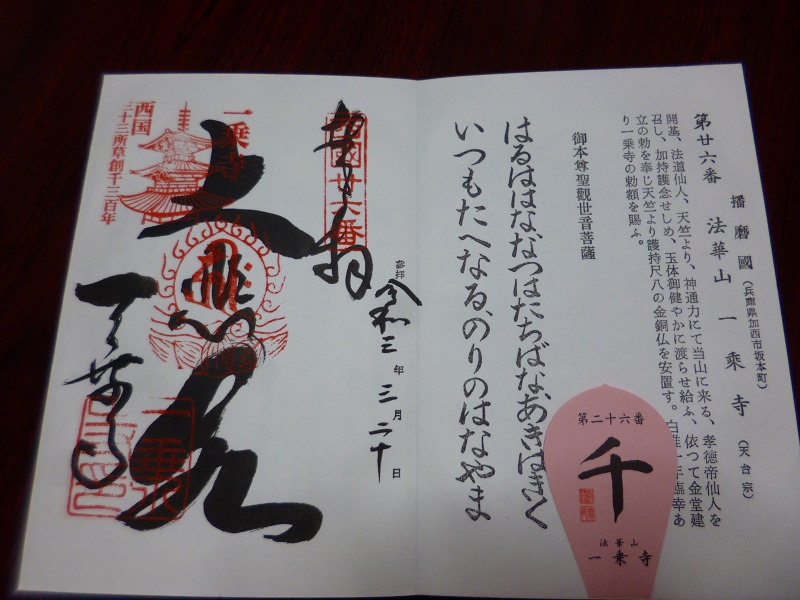 第廿六番 播磨國(兵庫県加西市坂本町) 法華山一乘寺(天台宗)
開基、法道仙人、天竺より、神通力にて当山に来る、孝徳帝仙人を
召し、加持護念せしめ、玉体御健やかに渡らせ給ふ、依つて金堂建
立の勅を奉じ天竺より護持尺八の金銅仏を安置す。白雉一年臨幸あ
り一乗寺の勅額を賜ふ。
御本尊聖觀世音菩薩
はるははな、なつはたちばな、あきはきく
いつもたへなる、のりのはなやま
第二十六番
千
法華山
一乗寺
奉拝
西國廿六番
参拝
令和三年三月二十日
一乗寺
大悲閣
一乗寺
西国
三十三所草創千三百年